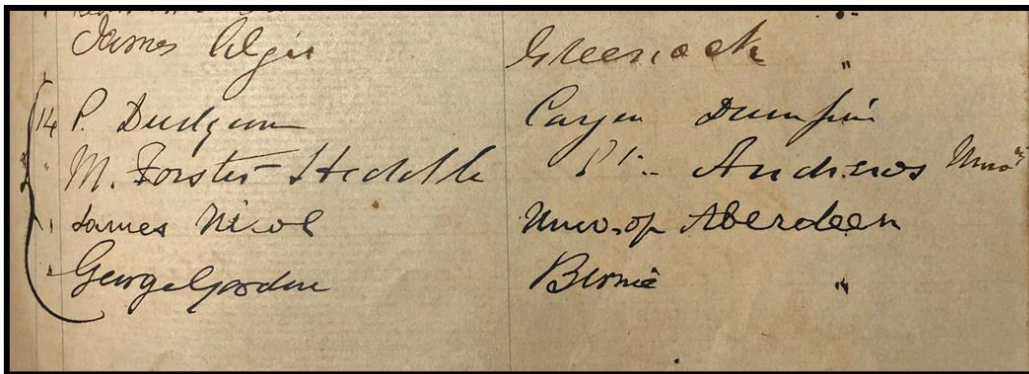 James Algie Greenock "
14 P. Dudgeon Cargen Dumfries
" M. Forster Heddle St. Andrews Univ
" James Nicol Univ. of Aberdeen
" George Gordon Birnie "